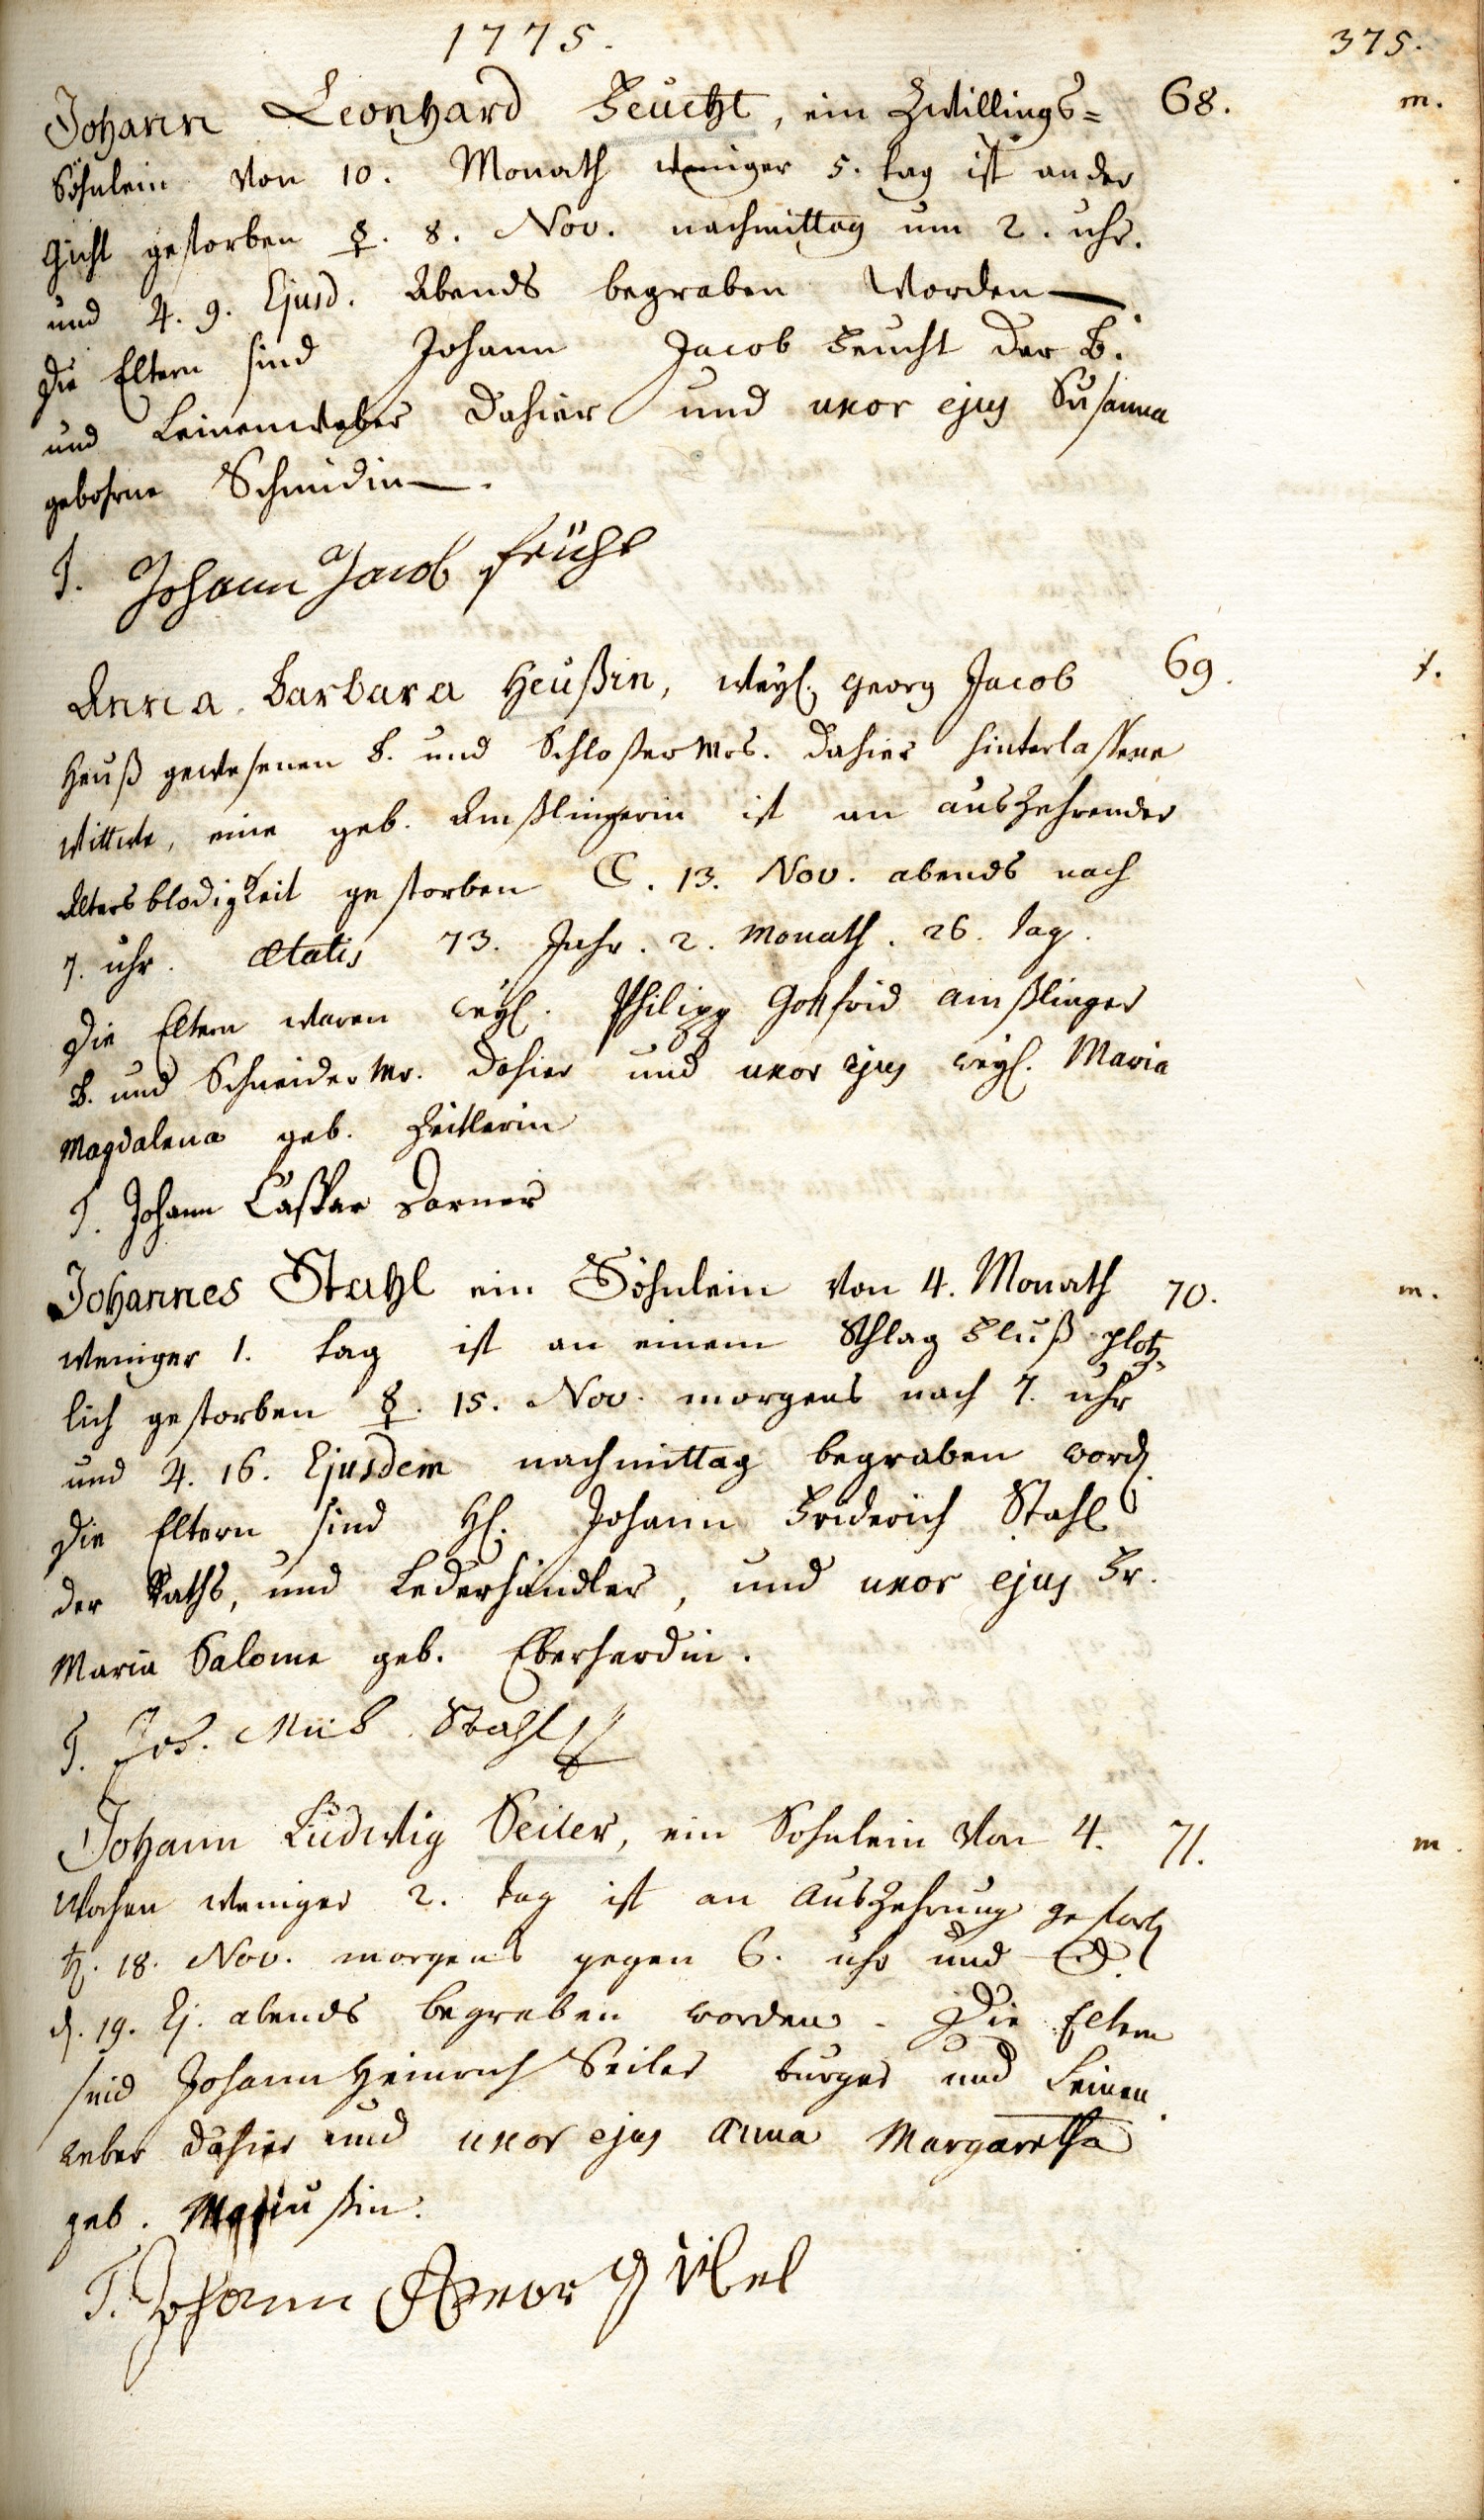 1775.
375.
Johann Leonhard Feucht, ein Zwillings=
68.
m.
Söhnlein von 10. Monath weniger 5. tag ist an der
Gicht gestorben ☿. 8. Nov. nachmittag um 2. uhr.
und ♃. 9. Ejusd. Abends begraben worden.
Die Eltern sind Johann Jacob Feucht der B.
und Leinenweber dahier und uxor ejus Susanna
gebohrne Schmidin.
T. Johann Jacob
Anna Barbara Heußin, weyl. Georg Jacob
69.
f.
Heuß gewesenen B. und Schloßer Mrs. dahier hinterlassene
Wittwe, eine geb. Amßlingerin ist an auszehrender
Altersblödigkeit gestorben ☾. 13. Nov. abends nach
7. uhr. Ætatis 73. Jahr. 2. Monath. 26. tag.
Die Eltern waren weyl. Philipp Gottfrid Amßlinger
B. und Schneider Mr. dahier und uxor ejus weyl. Maria
Magdalena geb. Zeitlerin
T. Johann Caspar Dorner
Johannes Stahl ein Söhnlein von 4. Monath
70.
m.
weniger 1. tag ist an einem Schlag Fluß plötz
lich gestorben ☿. 15. Nov. morgens nach 7. uhr
und ♃. 16. Ejusdem nachmittag begraben word.
Die Eltern sind H. Johann Friderich Stahl
der Raths, und Lederhändler, und uxor ejus Fr.
Maria Salome geb. Eberhardin.
T. Joh. Stahl
Johann Ludwig Seiler, ein Söhnlein von 4.
71.
m
Wochen weniger 2. tag ist an Auszehrung gestorb
♄. 18. Nov. morgens gegen 6. uhr und ☉.
d. 19. Ej. abends begraben worden. Die Eltern
sind Johann Heinrich Seiler burger und Leinen
weber dahier und uxor ejus Anna Margaretha
geb.
T. Johann Geor